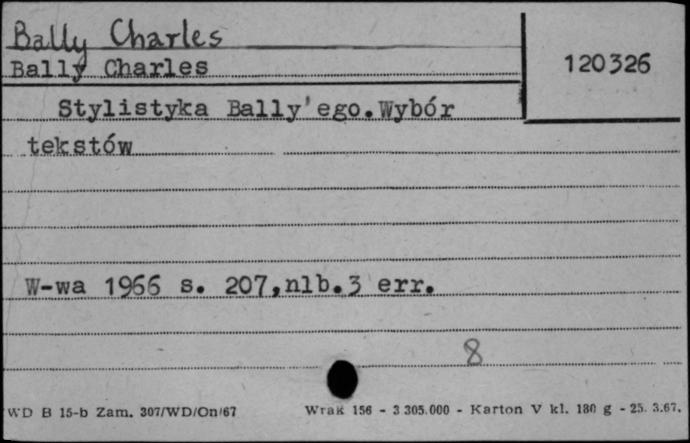 Bally Charles
Bally Charles
120326
Stylistyka Bally'ego.Wybór
tekstów
W-wa 1966 s. 207,nlb.3 err.
8
WD B 15-b Zam. 307/WD/On/67
Wrak 156 - 3 305.000 - Karton V kl. 180 g - 25. 3.67.